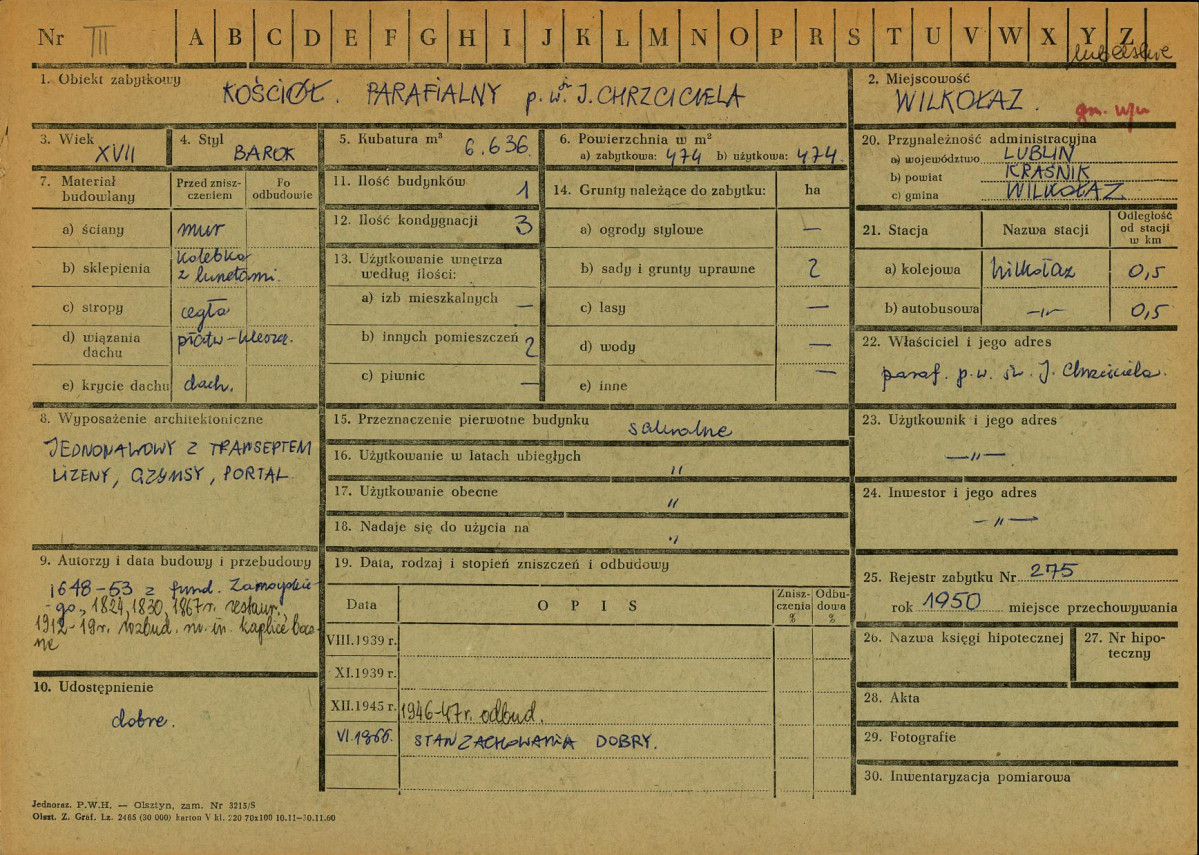 Nr III A B C D E F G H I J K L M N O P R S T U V W X Y Z
lubelskie
1. Obiekt zabytkowy KOŚCIÓŁ. PARAFIALNY p.w. św. J. CHRZCICIELA
2. Miejscowość
WILKOŁAZ.
gm. w/m
3. Wiek
XVII
4. Styl
BAROK
5. Kubatura m³ 6.636.
6. Powierzchnia w m²
a) zabytkowa: 474 b) użytkowa: 474.
20. Przynależność administracyjna
a) województwo LUBLIN
b) powiat KRAŚNIK
c) gmina WILKOŁAZ
7. Materiał budowlany
Przed zniszczeniem
Po odbudowie
a) ściany mur
b) sklepienia kolebka z lunetami.
c) stropy cegła
d) wiązania dachu płatw-kleszcz.
e) krycie dachu dach.
11. Ilość budynków 1
12. Ilość kondygnacji 3
13. Użytkowanie wnętrza
według ilości:
a) izb mieszkalnych —
b) innych pomieszczeń 2
c) piwnic —
14. Grunty należące do zabytku: ha
a) ogrody stylowe —
b) sady i grunty uprawne 2
c) lasy —
d) wody —
e) inne —
21. Stacja
Nazwa stacji
Odległość
od stacji
w km
a) kolejowa Wilkołaz 0,5
b) autobusowa —„— 0,5
22. Właściciel i jego adres
paraf. p.w. św. J. Chrzciciela.
8. Wyposażenie architektoniczne
JEDNONAWOWY Z TRANSEPTEM
LIZENY, GZYMSY, PORTAL
15. Przeznaczenie pierwotne budynku sakralne
16. Użytkowanie w latach ubiegłych „
17. Użytkowanie obecne „
18. Nadaje się do użycia na „
23. Użytkownik i jego adres
—„—
24. Inwestor i jego adres
—„—
9. Autorzy i data budowy i przebudowy
1648-53 z fund. Zamoyskie-
-go, 1824, 1830, 1867r. restaur.
1912-19r. rozbud. m. in. kaplice bocz
ne
10. Udostępnienie
dobre.
19. Data, rodzaj i stopień zniszczeń i odbudowy
Data
OPIS
Zniszczenia %
Odbudowa %
VIII.1939 r.
XI.1939 r.
XII.1945 r. 1946-47r. odbud.
VI.1966. STAN ZACHOWANIA DOBRY.
25. Rejestr zabytku Nr 275
rok 1950 miejsce przechowywania
26. Nazwa księgi hipotecznej
27. Nr hipo-
teczny
28. Akta
29. Fotografie
30. Inwentaryzacja pomiarowa
Jednoraz. P.W.H. — Olsztyn, zam. Nr 3215/S
Olszt. Z. Graf. Lz. 2485 (30 000) karton V kl. 220 70x100 10.11—30.11.60